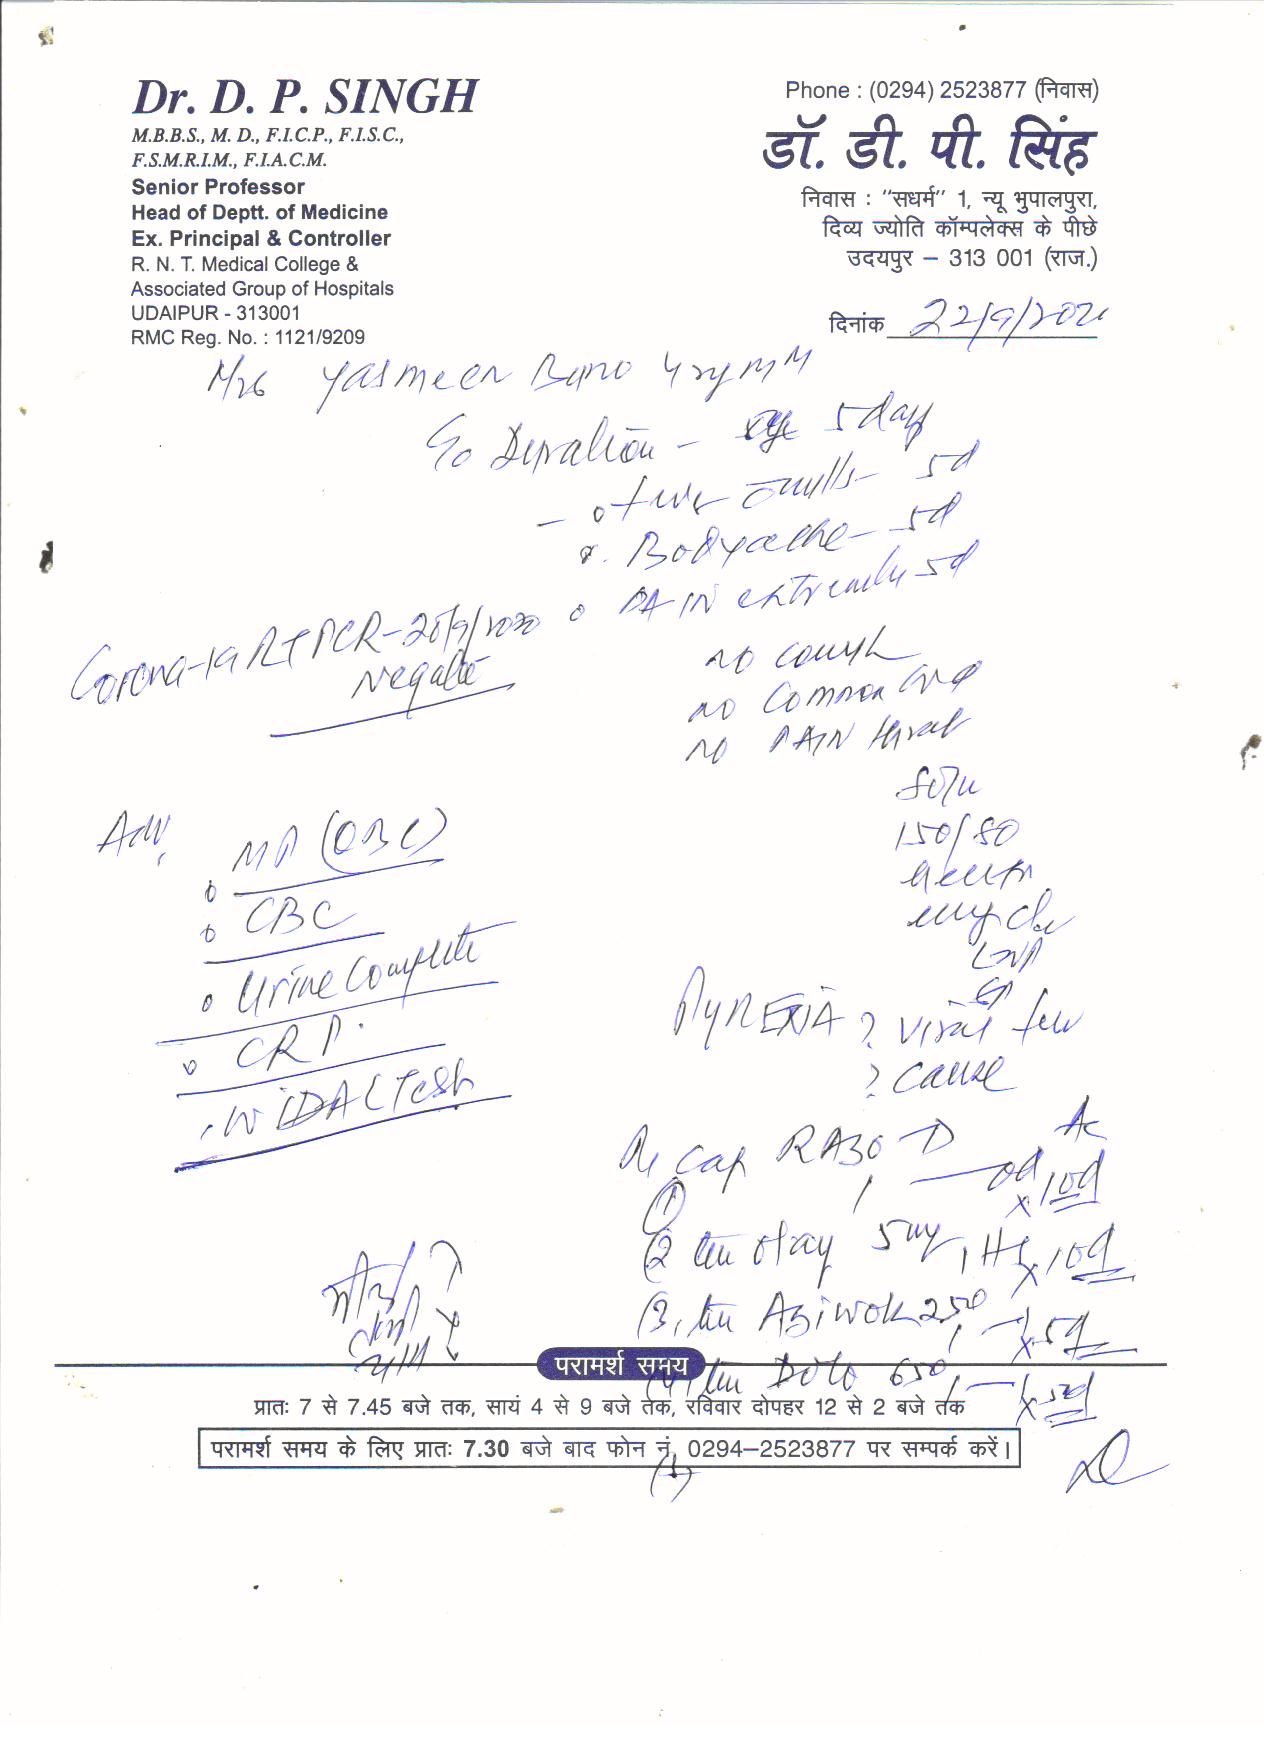 Dr. D. P. SINGH
M.B.B.S., M. D., F.I.C.P., F.I.S.C.,
F.S.M.R.I.M., F.I.A.C.M.
Senior Professor
Head of Deptt. of Medicine
Ex. Principal & Controller
R. N. T. Medical College &
Associated Group of Hospitals
UDAIPUR - 313001
RMC Reg. No. : 1121/9209
Phone : (0294) 2523877 (निवास)
डॉ. डी. पी. सिंह
निवास : "सधर्म" 1, न्यू भुपालपुरा,
दिव्य ज्योति कॉम्पलेक्स के पीछे
उदयपुर – 313 001 (राज.)
दिनांक 22/9/2020
Mrs Yasmeen Bano
C/o Duration - 5 days
5d
Bodyache - 5d
PAIN 5d
Corona-19 RTPCR - 20/9/2020
Negative
no cough
no Common cold
no PAIN throat
150/80
Adv.
MP (QBC)
CBC
Urine Complete
CRP
WIDAL Test
PYREXIA ? Viral fever
? Cause
Cap RAZO D AC
(1) 1 — od x 10d
(2 5mg 1 HS x 10d
(3, Aziwok 250
1 — 1 x 5d
(4) Dolo 650
1 — 1 x 5d
परामर्श समय
प्रातः 7 से 7.45 बजे तक, सायं 4 से 9 बजे तक, रविवार दोपहर 12 से 2 बजे तक
परामर्श समय के लिए प्रातः 7.30 बजे बाद फोन नं. 0294–2523877 पर सम्पर्क करें।